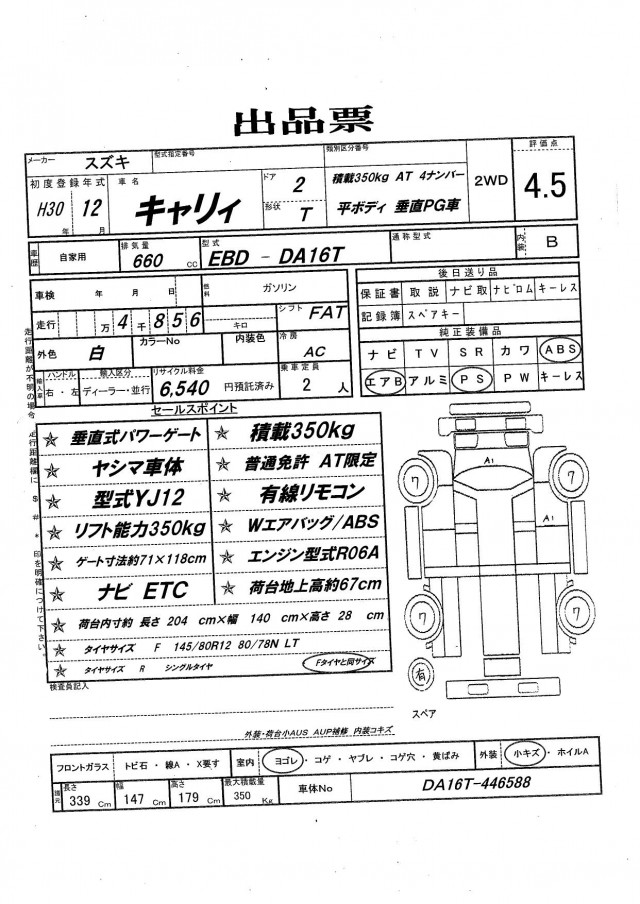 出品票
メーカー スズキ 型式指定番号 類別区分番号 評価点
初度登録年式 車名 ドア 2 積載350kg AT 4ナンバー 2WD 4.5
H30 年 12 月 キャリィ 形状 T 平ボディ 垂直PG車
車歴 自家用 排気量 660 cc 型式 EBD - DA16T 通称型式 内装 B
車検 年 月 日 燃料 ガソリン 後日送り品
走行 万 4 千 8 5 6 キロ シフト FAT 保証書 取説 ナビ取 ナビロム キーレス
記録簿 スペアキー
外色 白 カラーNo 内装色 冷房 AC 純正装備品
ナビ TV SR カワ ABS
輸入車 ハンドル 右・左 輸入区分 ディーラー・並行 リサイクル料金 6,540 円預託済み 乗車定員 2 人 エアB アルミ PS PW キーレス
走行距離が不明の場合 走行距離欄に $ # * 印を明確につけて下さい。
セールスポイント
☆ 垂直式パワーゲート ☆ 積載350kg
☆ ヤシマ車体 ☆ 普通免許 AT限定
☆ 型式YJ12 ☆ 有線リモコン
☆ リフト能力350kg ☆ Wエアバッグ/ABS
☆ ゲート寸法約71×118cm ☆ エンジン型式R06A
☆ ナビ ETC ☆ 荷台地上高約67cm
☆ 荷台内寸約 長さ 204 cm×幅 140 cm×高さ 28 cm
☆ タイヤサイズ F 145/80R12 80/78N LT
☆ タイヤサイズ R シングルタイヤ Fタイヤと同サイズ
7 A1 7
A1
7 7
有
スペア
検査員記入
外装・荷台小AUS AUP補修 内装コキズ
フロントガラス トビ石・線A・X要す 室内 ヨゴレ・コゲ・ヤブレ・コゲ穴・黄ばみ 外装 小キズ・ホイルA
諸元 長さ 339 Cm 幅 147 Cm 高さ 179 Cm 最大積載量 350 Kg 車体No DA16T-446588